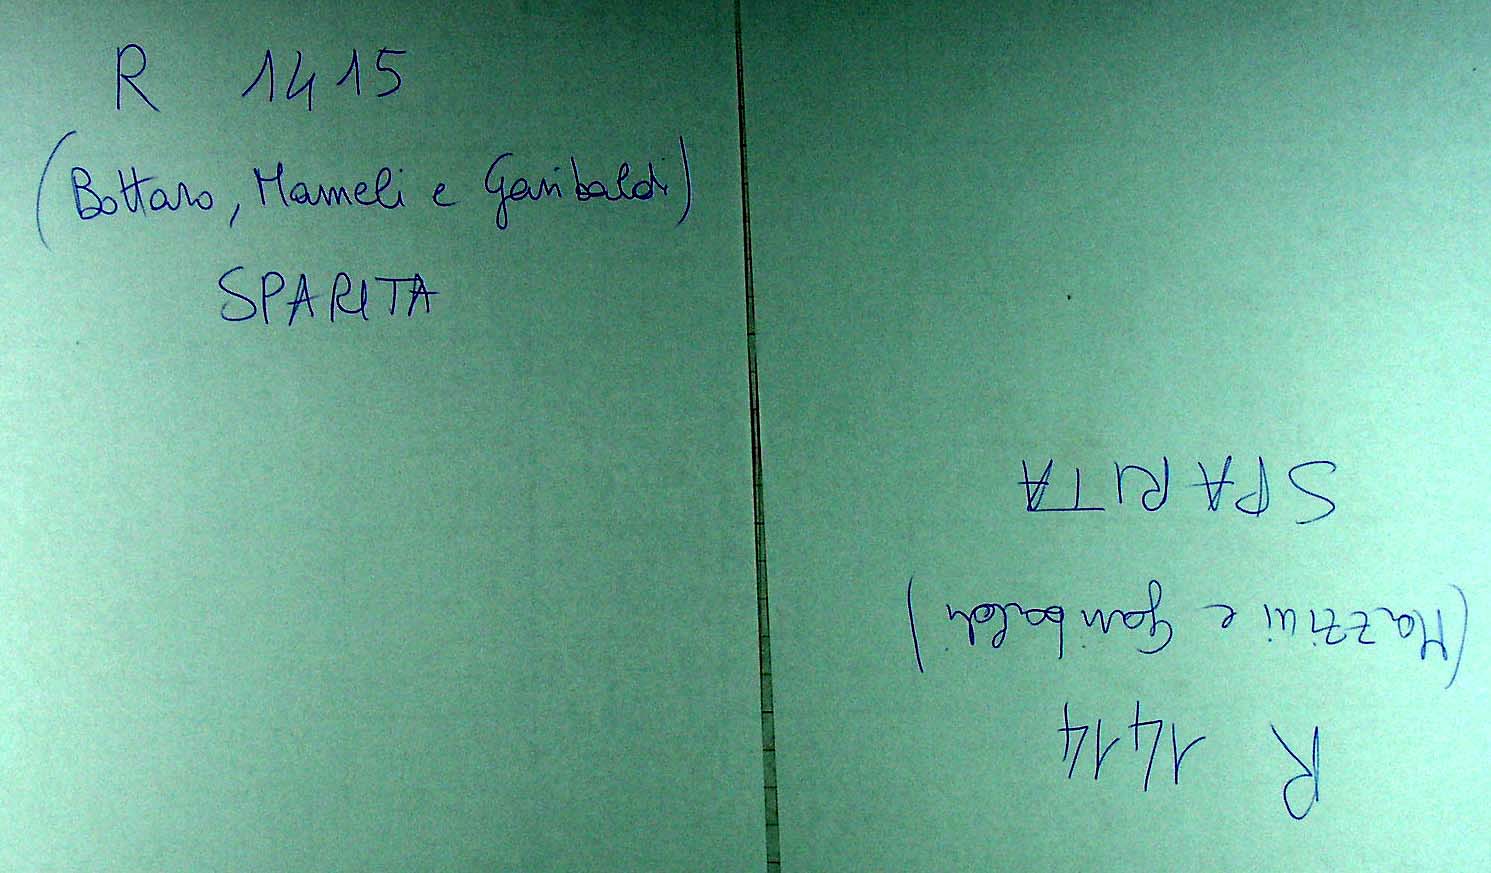 R 1415
(Bottaro, Mameli e Garibaldi)
SPARITA
R 1414
(Mazzini e Garibaldi)
SPARITA